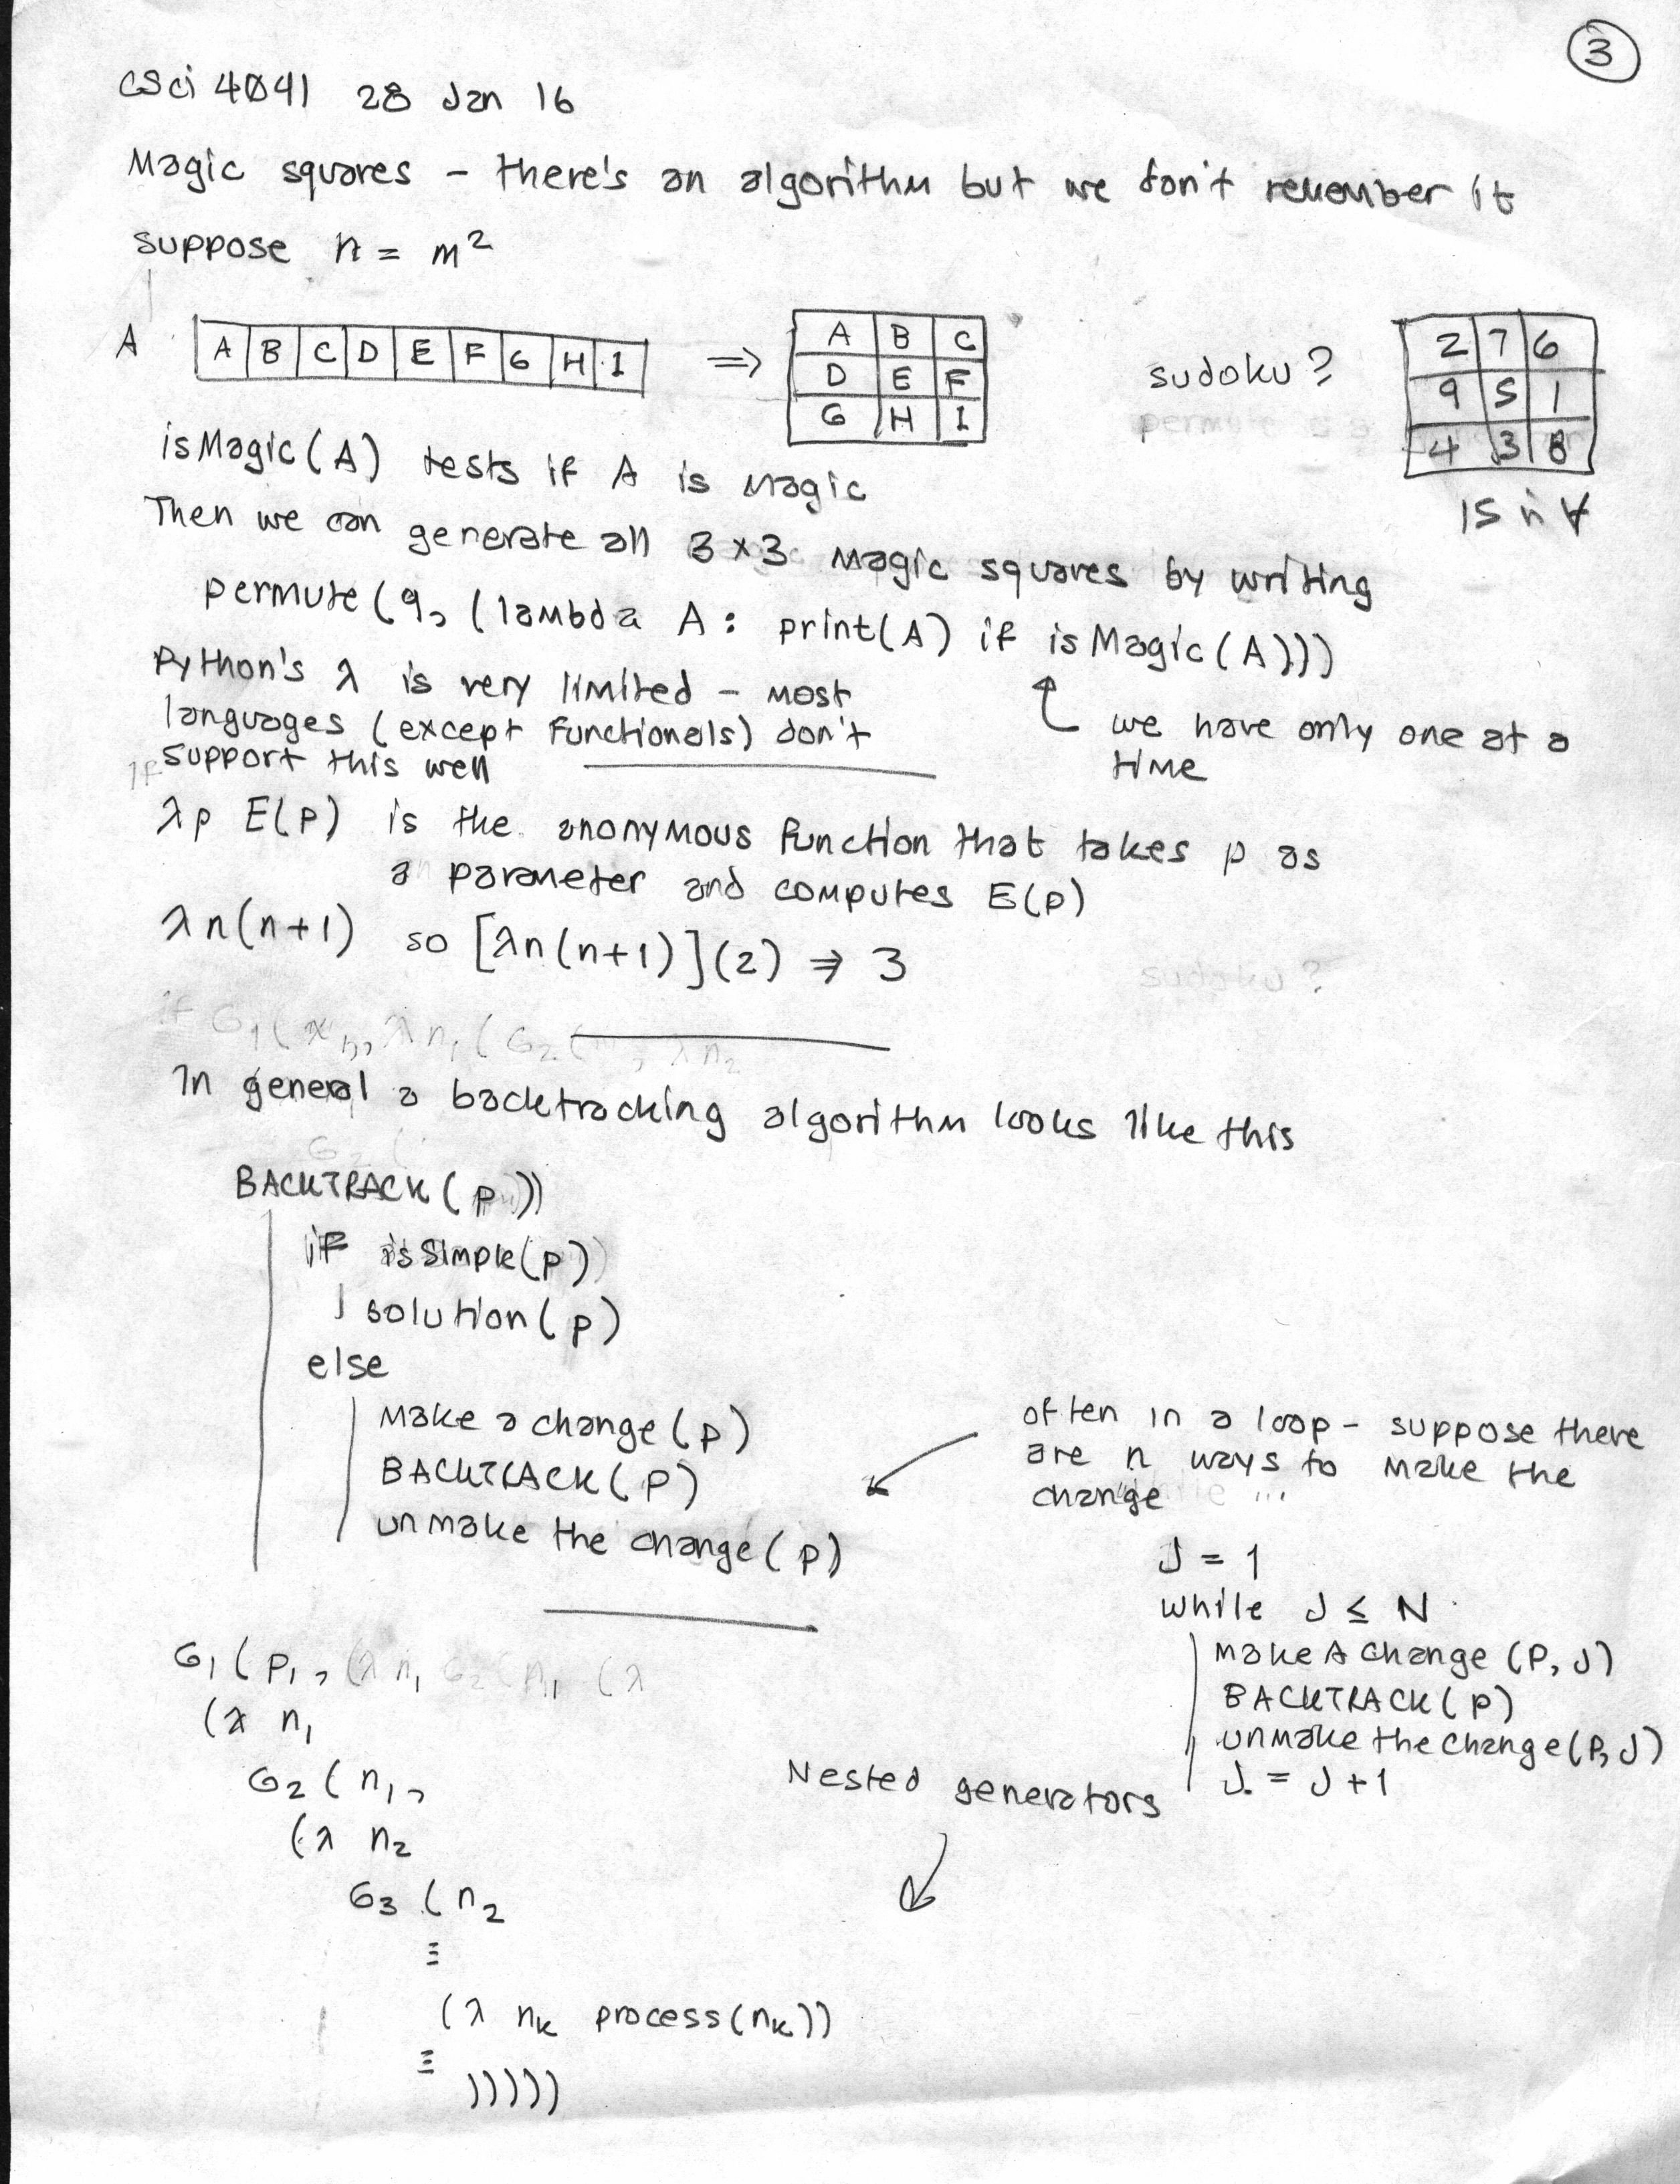 3
CSci 4041 28 Jan 16
Magic squares - there's an algorithm but we don't remember it
suppose n = m²
A A B C D E F G H I ⇒
A B C
D E F
G H I
sudoku?
2 7 6
9 5 1
4 3 8
isMagic(A) tests if A is magic
Then we can generate all 3 × 3 magic squares by writing
permute(9, (lambda A: print(A) if isMagic(A)))
Python's λ is very limited - most
languages (except functionals) don't
support this well
we have only one at a
time
λp E(p) is the anonymous function that takes p as
a parameter and computes E(p)
λn(n+1) so [λn(n+1)](2) ⇒ 3
sudoku?
In general a backtracking algorithm looks like this
BACKTRACK(P)
if isSimple(P)
solution(P)
else
Make a change(P)
BACKTRACK(P)
unmake the change(P)
often in a loop - suppose there
are n ways to make the
change
J = 1
while J ≤ N
Make A change (P, J)
BACKTRACK(P)
unmake the change(P, J)
J = J + 1
G₁(p₁,
(λ n₁
G₂(n₁,
(λ n₂
G₃(n₂
≡
(λ nₖ process(nₖ))
≡
)))))
Nested generators